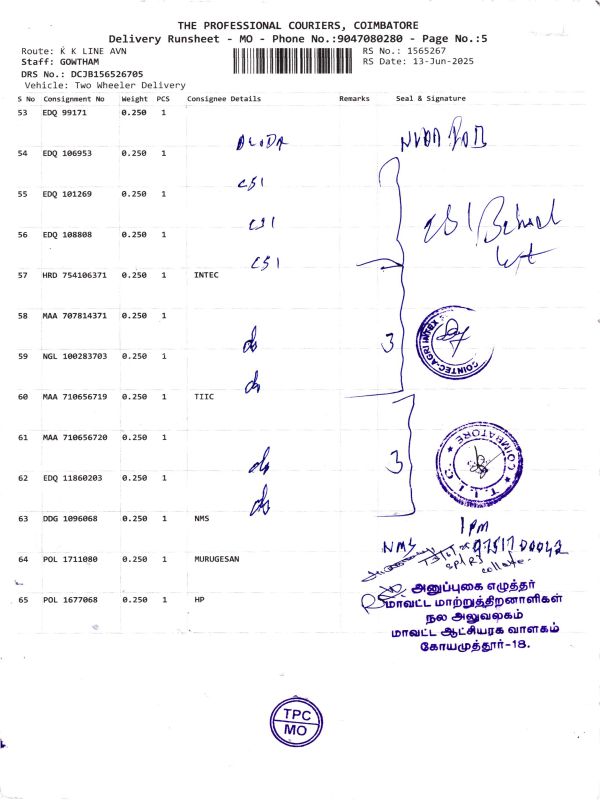 THE PROFESSIONAL COURIERS, COIMBATORE
Delivery Runsheet - MO - Phone No.:9047080280 - Page No.:5
Route: K K LINE AVN RS No.: 1565267
Staff: GOWTHAM RS Date: 13-Jun-2025
DRS No.: DCJB156526705
Vehicle: Two Wheeler Delivery
S No Consignment No Weight PCS Consignee Details Remarks Seal & Signature
53 EDQ 99171 0.250 1
54 EDQ 106953 0.250 1
CSI
55 EDQ 101269 0.250 1
CSI
56 EDQ 108808 0.250 1
CSI
57 HRD 754106371 0.250 1 INTEC
58 MAA 707814371 0.250 1
do
59 NGL 100283703 0.250 1 3
do
COINTEC-AGRI INTEX
60 MAA 710656719 0.250 1 TIIC
61 MAA 710656720 0.250 1
do
3
62 EDQ 11860203 0.250 1
do
T.I.I.C. * COIMBATORE *
63 DDG 1096068 0.250 1 NMS
1 PM
NMS
64 POL 1711080 0.250 1 MURUGESAN
65 POL 1677068 0.250 1 HP
அனுப்புகை எழுத்தர்
மாவட்ட மாற்றுத்திறனாளிகள்
நல அலுவலகம்
மாவட்ட ஆட்சியரக வாளகம்
கோயமுத்தூர்-18.
TPC
MO